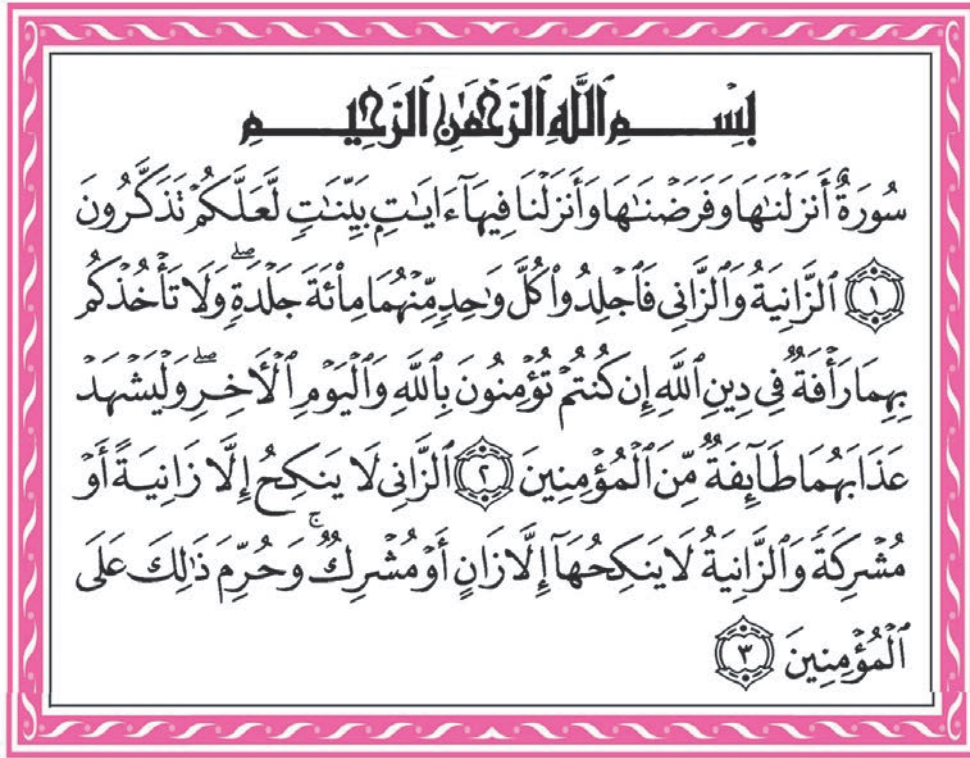 بِسْمِ ٱللَّهِ ٱلرَّحْمَٰنِ ٱلرَّحِيمِ
سُورَةٌ أَنزَلْنَٰهَا وَفَرَضْنَٰهَا وَأَنزَلْنَا فِيهَآ ءَايَٰتٍۭ بَيِّنَٰتٍ لَّعَلَّكُمْ تَذَكَّرُونَ
١ ٱلزَّانِيَةُ وَٱلزَّانِى فَٱجْلِدُوا۟ كُلَّ وَٰحِدٍ مِّنْهُمَا مِا۟ئَةَ جَلْدَةٍ ۖ وَلَا تَأْخُذْكُم
بِهِمَا رَأْفَةٌ فِى دِينِ ٱللَّهِ إِن كُنتُمْ تُؤْمِنُونَ بِٱللَّهِ وَٱلْيَوْمِ ٱلْءَاخِرِ ۖ وَلْيَشْهَدْ
عَذَابَهُمَا طَآئِفَةٌ مِّنَ ٱلْمُؤْمِنِينَ ٢ ٱلزَّانِى لَا يَنكِحُ إِلَّا زَانِيَةً أَوْ
مُشْرِكَةً وَٱلزَّانِيَةُ لَا يَنكِحُهَآ إِلَّا زَانٍ أَوْ مُشْرِكٌ ۚ وَحُرِّمَ ذَٰلِكَ عَلَى
ٱلْمُؤْمِنِينَ ٣